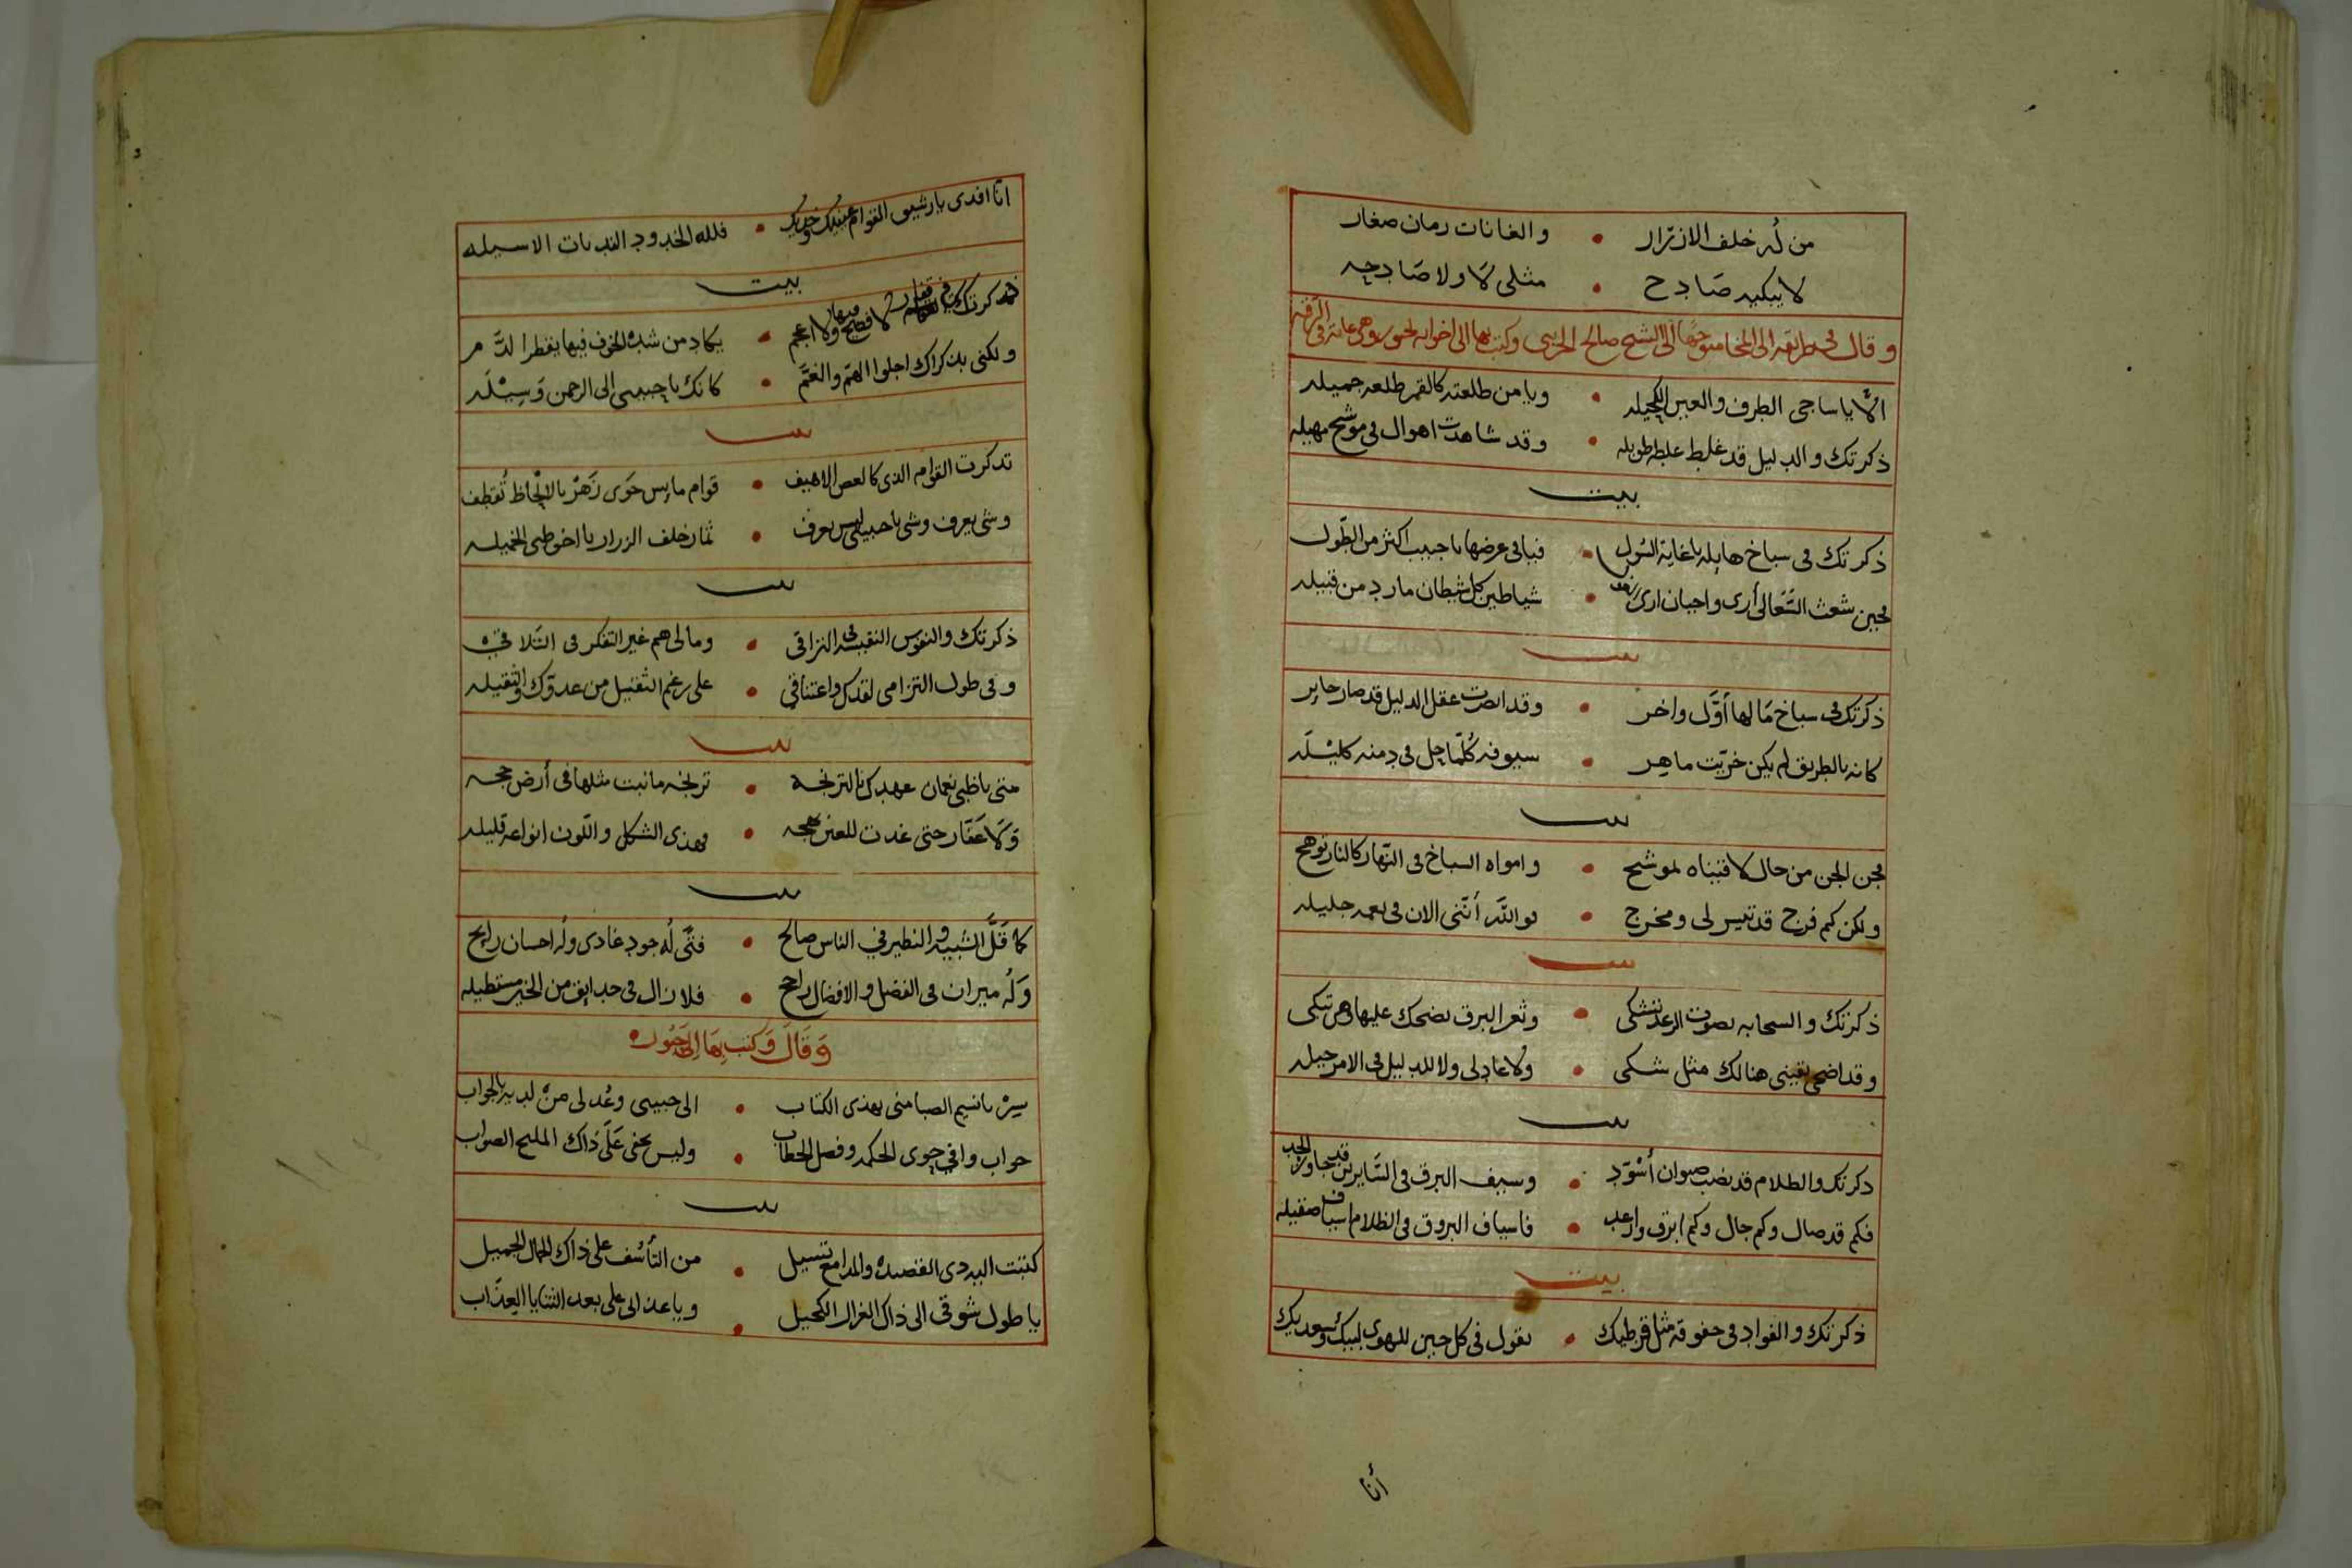 من له خلف الازرار • والغانات رمان صغار
لا يبكيه صادح • مثلي لا ولا صادحه
وقال في طريقه الى المخا متوجها الى الشيخ صالح الحريبي وكتب بها الى اخوانه لحوره وهي غاية في الرقه
الا يا ساجي الطرف والعين الكحيله • ويا من طلعته كالقمر طلعه جميله
ذكرتك والدليل قد غلط غلطه طويله • وقد شاهدت اهوال في موشح مهيله
بيت
ذكرتك في سباخ هايله يا غاية السول • فيافي عرضها يا حبيب اكثر من الطول
بحين شعث السعالى أرى واحيان ارى • شياطين كل شيطان مارد من قبيله
بيت
ذكرتك في سباخ ما لها أول واخر • وقد ابصرت عقل الدليل قد صار حاير
كانه بالطريق لم يكن خرّيت ماهر • سيوفه كلما حل في دمنه كليله
بيت
فحن الجن من حال لاقيناه لموشح • وامواه السباخ في النهار كالنار توهج
ولكن كم فرج قد تيسر لي ومخرج • فوالله أنني الان في نعمه جليله
بيت
ذكرتك والسحابه بصوت الرعد تشكي • وثغر البرق يضحك عليها وهي تبكي
وقد اضحى يقيني هنالك مثل شكي • ولا عاد لي ولا للدليل في الامر حيله
بيت
ذكرتك والظلام قد نصب صيوان أسود • وسيف البرق في السايرين قد جاوز الحد
فكم قد صال وكم جال وكم ابرق وارعد • فاسياف البروق في الظلام اسياف صقيله
بيت
ذكرتك والفواد في خفوقه مثل قرطيك • يقول في كل حين للهوى لبيك وسعديك
أنا
انا افدي يا رشيق القوام عينيك وخديك • فلله الخدود النديات الاسيله
بيت
ذكرتك في قفار لا فصيح فيها ولا اعجم • يكاد من شدة الخوف فيها يقطر الدم
ولكني بذكراك اجلوا الهم والغم • كانك يا حبيبي الى الرحمن وسيله
بيت
تذكرت القوام الذي كالغصن الاهيف • قوام مايس حوى زهر بالالحاظ تقطف
وشي يعرف وشي يا حبيبي ليس يعرف • ثمار خلف الزرار يا اخو ظبي الخميله
بيت
ذكرتك والنفوس النفيسه في التراقي • وما لي هم غير التفكر في التلاقي
وفي طول التزامي لقدك واعتناقي • على رغم الثقيل من عدوك والثقيله
بيت
متى يا ظبي نعمان عهدك بالترنجه • ترنجه ما نبت مثلها في أرض حجه
ولا عفار حتى غدت للعين بهجه • فهذي الشكل واللون انواعه قليله
بيت
كما قل الشبيه والنظير في الناس صالح • فتى له جود غادي وله احسان رايح
وله ميزان في الفضل والافضال راجح • فلا زال في حدايق من الخير مستطيله
وقال وكتب بها الى حوره
سر يا نسيم الصبا مني بهذي الكتاب • الى حبيبي وعد لي من لديه بالجواب
جواب وافي حوى الحكمه وفصل الخطاب • وليس يخفى على ذاك المليح الصواب
بيت
كتبت اليه ذي القصيده والمدامع تسيل • من التأسف على ذاك الجمال الجميل
يا طول شوقي الى ذاك الغزال الكحيل • ويا عذابي على بعد الثنايا العذاب